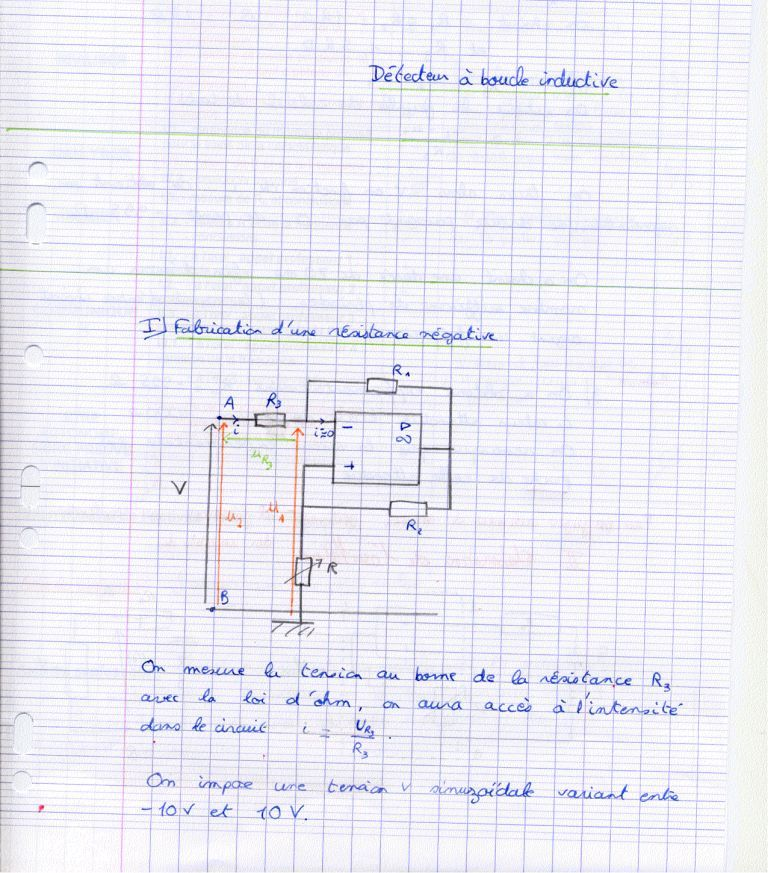 Détecteur à boucle inductive
I) Fabrication d'une résistance négative
R1
A
R3
i
i=0
-
▷
∞
uR3
+
V
u2
u1
R2
R
B
On mesure la tension au borne de la résistance R3
avec la loi d'ohm, on aura accès à l'intensité
dans le circuit i = UR3 / R3 .
On impose une tension V sinusoïdale variant entre
-10V et 10V.